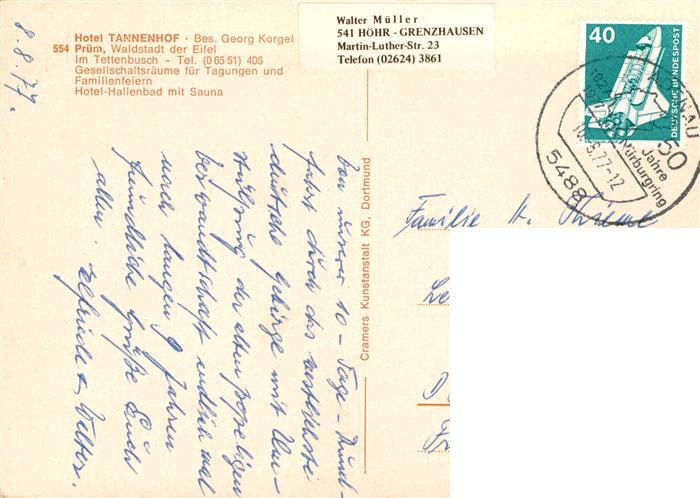 8.8.77.
Hotel TANNENHOF · Bes. Georg Korgel
554 Prüm, Waldstadt der Eifel
Im Tettenbusch - Tel. (0 65 51) 406
Gesellschaftsräume für Tagungen und
Familienfeiern
Hotel-Hallenbad mit Sauna
Walter Müller
541 HÖHR - GRENZHAUSEN
Martin-Luther-Str. 23
Telefon (02624) 3861
40
DEUTSCHE BUNDESPOST
ADENAU
50
Jahre
Nürburgring
10.8.77-12
5488
Cramers Kunstanstalt KG, Dortmund
Von unserer 10-Tage-Rund-
fahrt durch das westliche
deutsche Gebirge mit Um-
der
Verwandtschaft endlich mal
nach langen Jahren
freundliche Grüße Euch
allen. Elfriede & Walter.
Familie H.